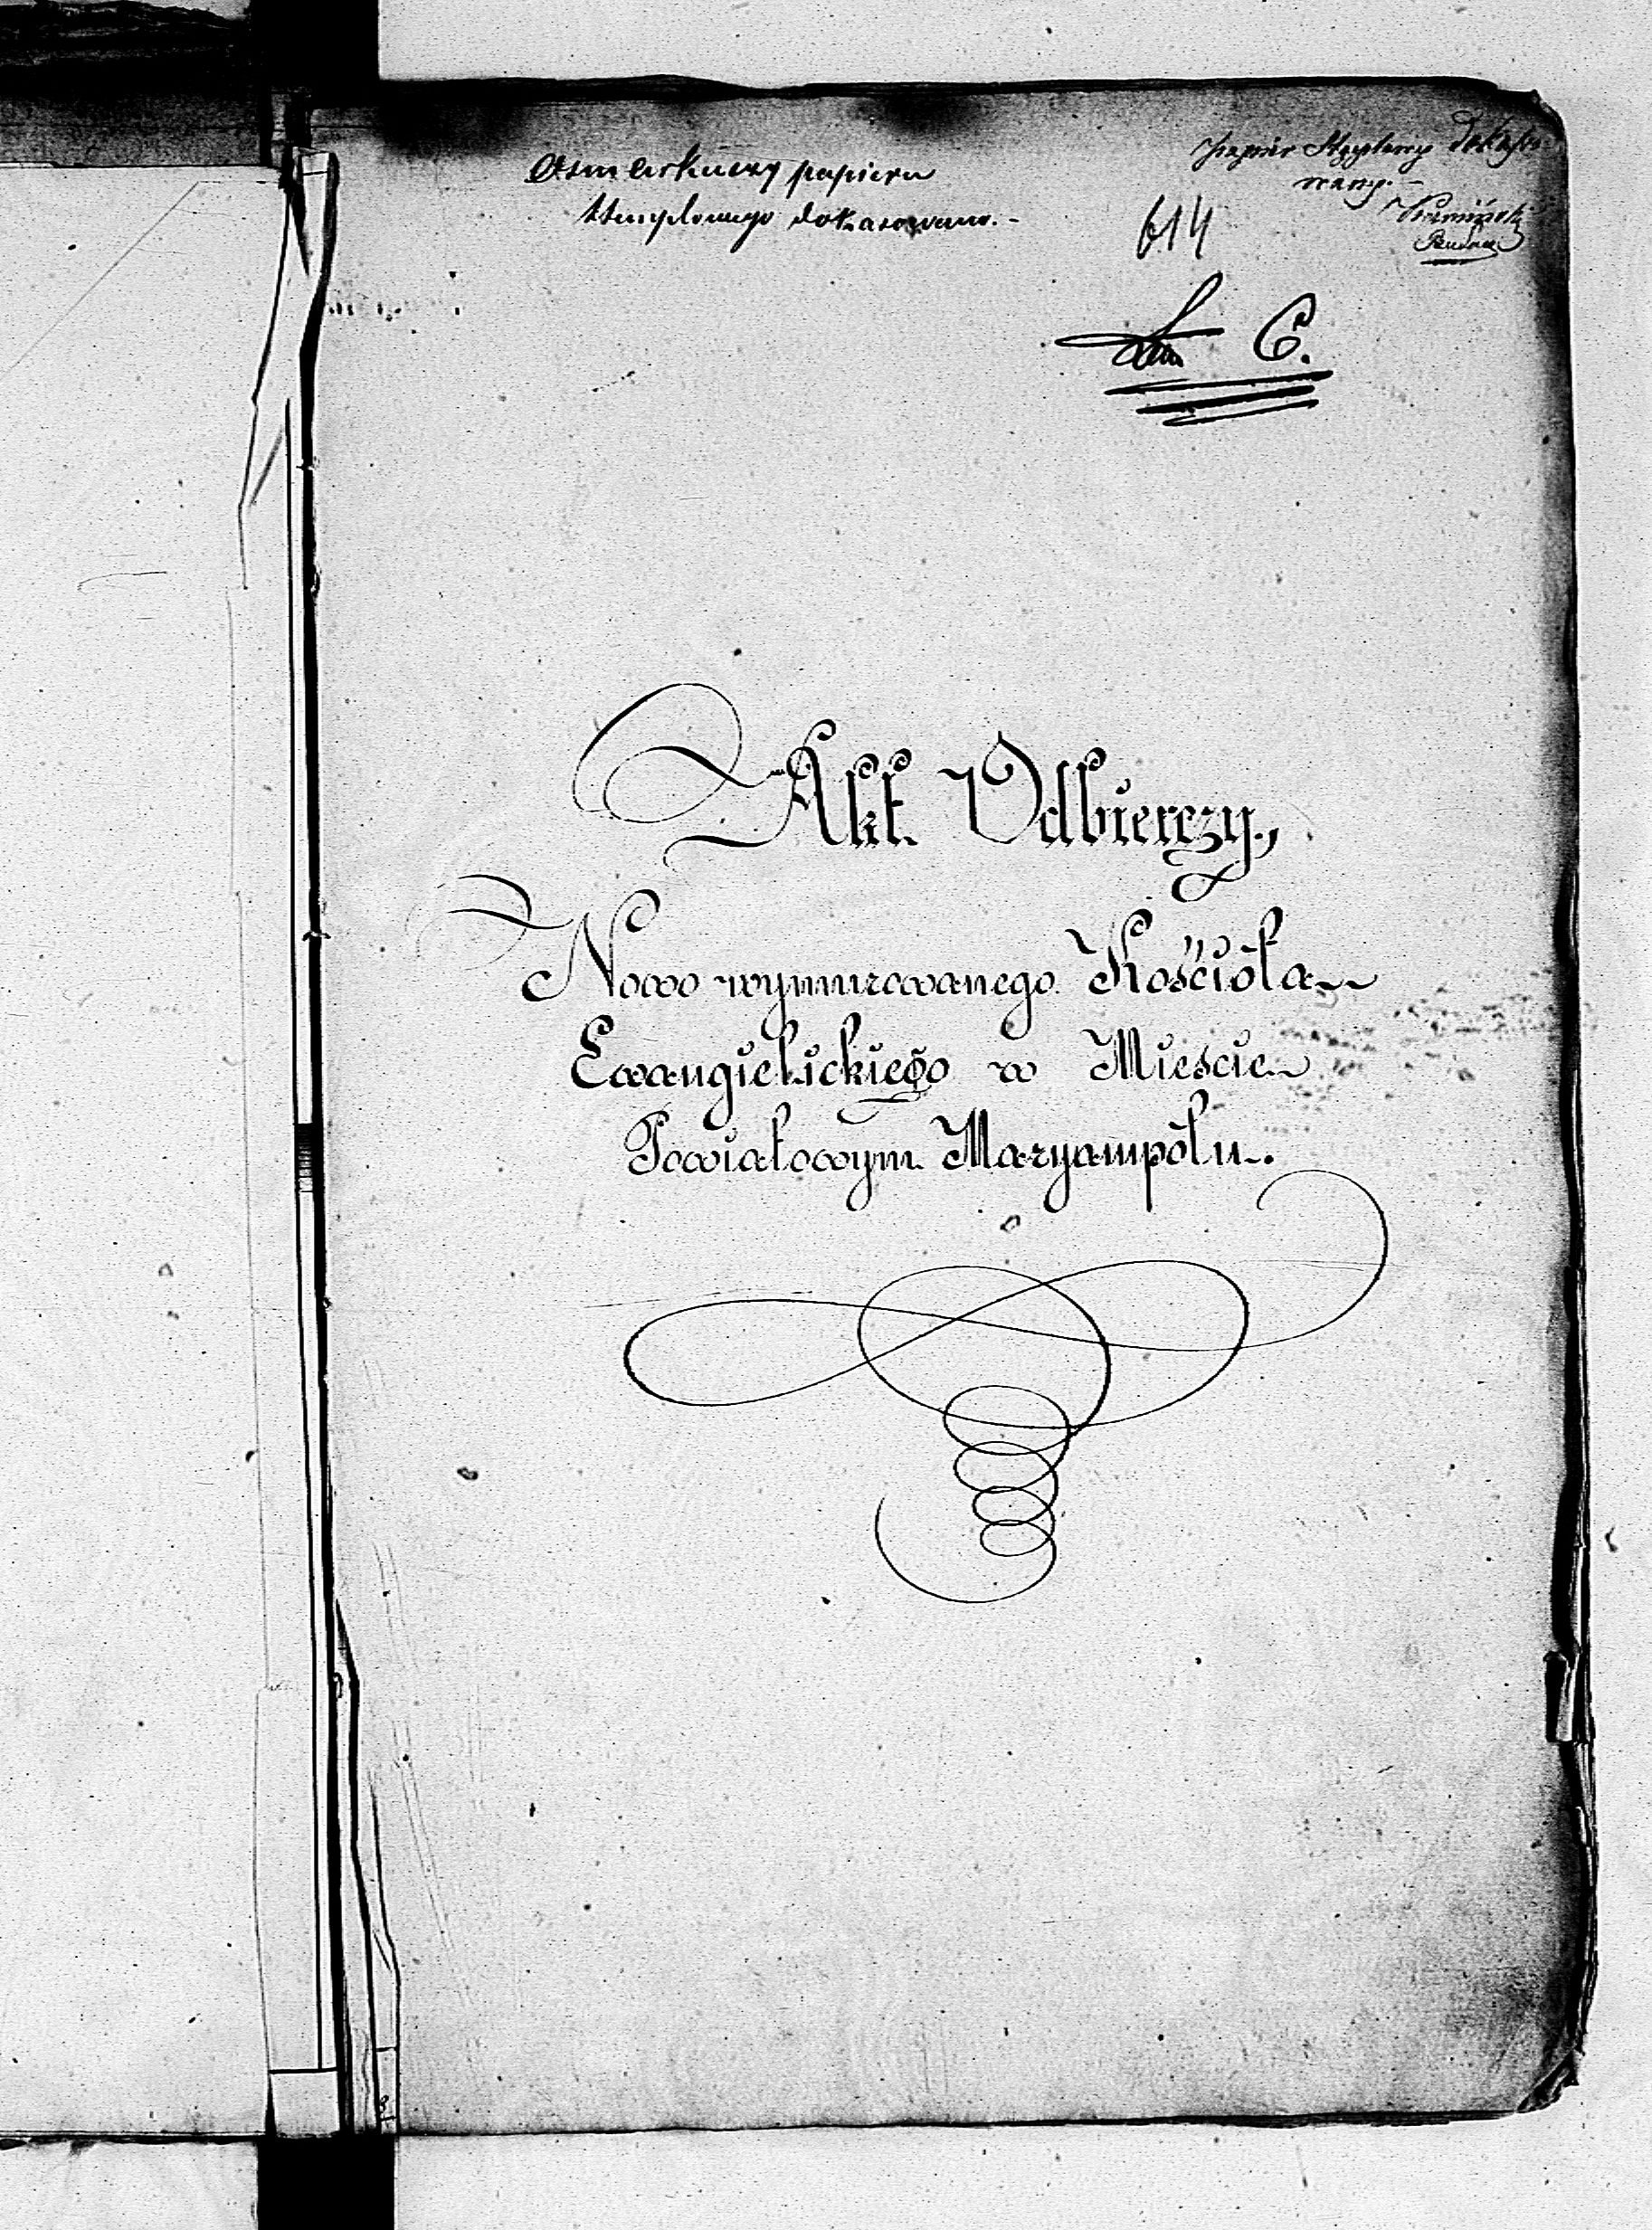 Osm arkuszy papieru
stemplowego dokasowano. -
Papier Stęplowy dokasowany. -
614
C.
Akt Odbierczy,
Nowo wymurowanego Kościoła
Ewangielickiego w Miescie
Powiatowym Maryampólu.